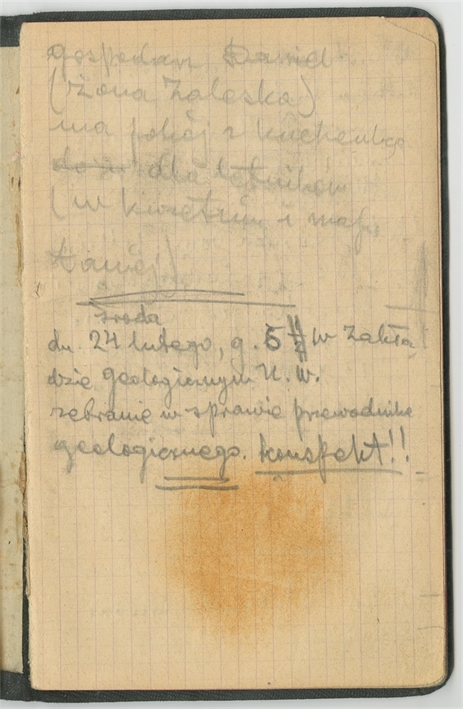 gospodarz Daniel
(żona Zaleska)
ma pokój z kuchenką
dla letników
(w kwietniu i maju
taniej)
środa
dn. 24 lutego, g. 5 1/2 w Zakła
dzie geologicznym U. W.
zebranie w sprawie przewodnika
geologicznego. konspekt!!